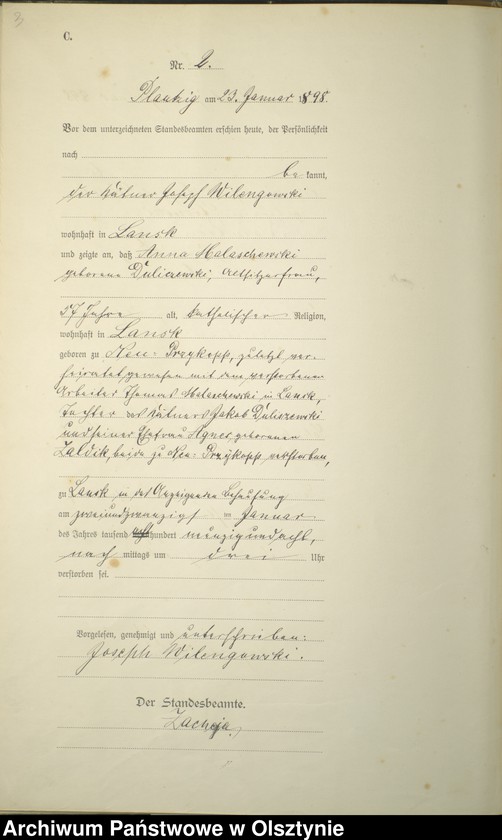 3
C.
Nr. 2.
Plautzig am 23. Januar 1898.
Vor dem unterzeichneten Standesbeamten erschien heute, der Persönlichkeit
nach
be kannt,
der Kätner Joseph Wilengowski
wohnhaft in Lansk
und zeigte an, daß Anna Malaschewski
geborene Duliczewski, Altsitzerfrau,
57 Jahre alt, katholischer Religion,
wohnhaft in Lansk
geboren zu Neu-Przykopp, zuletzt ver-
heiratet gewesen mit dem verstorbenen
Arbeiter Thomas Malaschewski in Lansk,
Tochter des Kätners Jakob Duliczewski
und seiner Ehefrau Agnes geborenen
Zaldik, beide zu Neu-Przykopp verstorben,
zu Lansk in des Anzeigenden Behausung
am zweiundzwanzigst en Januar
des Jahres tausend achthundert neunzigundacht,
nach mittags um drei Uhr
verstorben sei.
Vorgelesen, genehmigt und unterschrieben:
Joseph Wilengowski.
Der Standesbeamte.
Zacheja
Archiwum Państwowe w Olsztynie